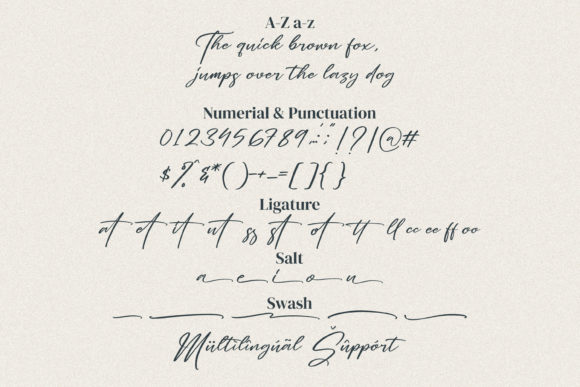 A-Z a-z
The quick brown fox,
jumps over the lazy dog
Numerial & Punctuation
0123456789.,:;'"!?|@#
$%^&*()-+_=[]{}
Ligature
at et it ut ss st ot tt ll cc ee ff oo
Salt
a e i o u
Swash
Mültilingúãl Şûppórt